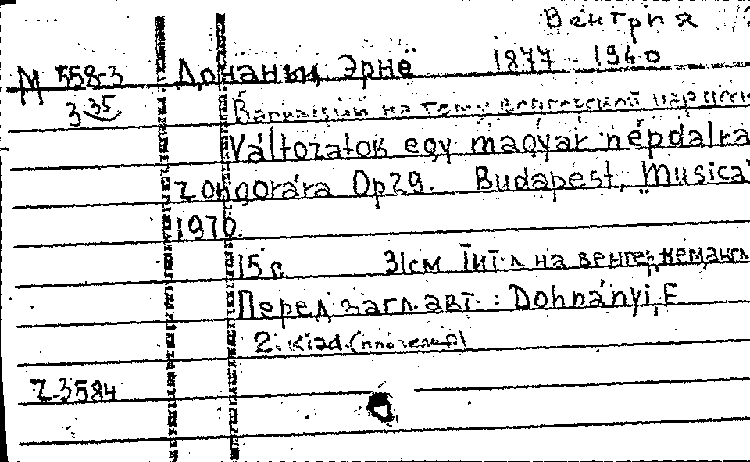 Венгрия
М 558-3 Донаньи, Эрнё 1877 - 1960
3 35 Вариации на тему венгерской народной
Változatok egy magyar népdalra
zongorára Op29. Budapest, Musica
1970.
15 с 31см Тит. л на венгер, нем, англ
Перед загл. авт. : Dohnányi, E
2. kiad.
Z-3584